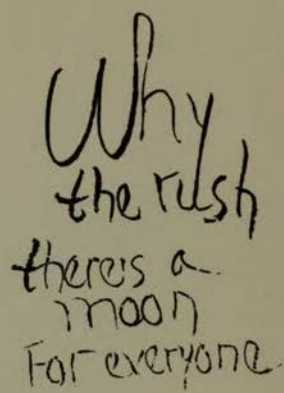 Why
the rush
there's a
moon
For everyone